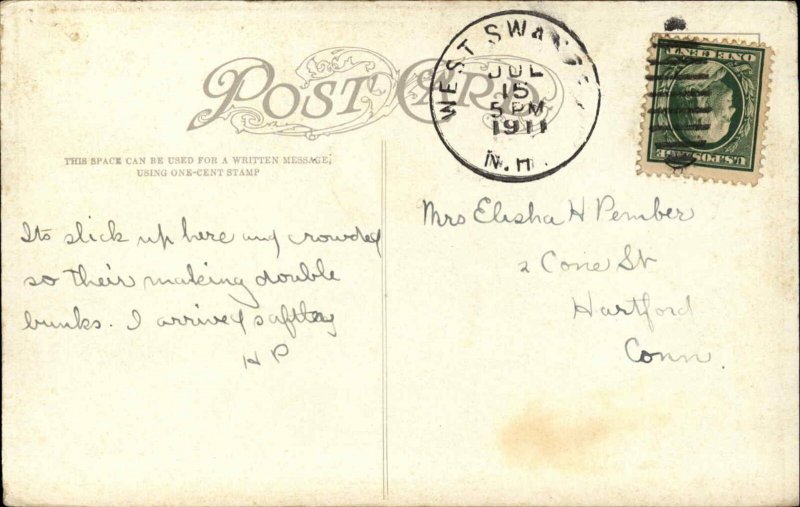 POST CARD
THIS SPACE CAN BE USED FOR A WRITTEN MESSAGE,
USING ONE-CENT STAMP
WEST SWANZEY
JUL
15
5 PM
1911
N.H.
ONE CENT
U.S. POSTAGE
Its slick up here and crowded
so their making double
bunks. I arrived saftey
H P
Mrs Elisha H Pember
2 Cone St
Hartford
Conn.